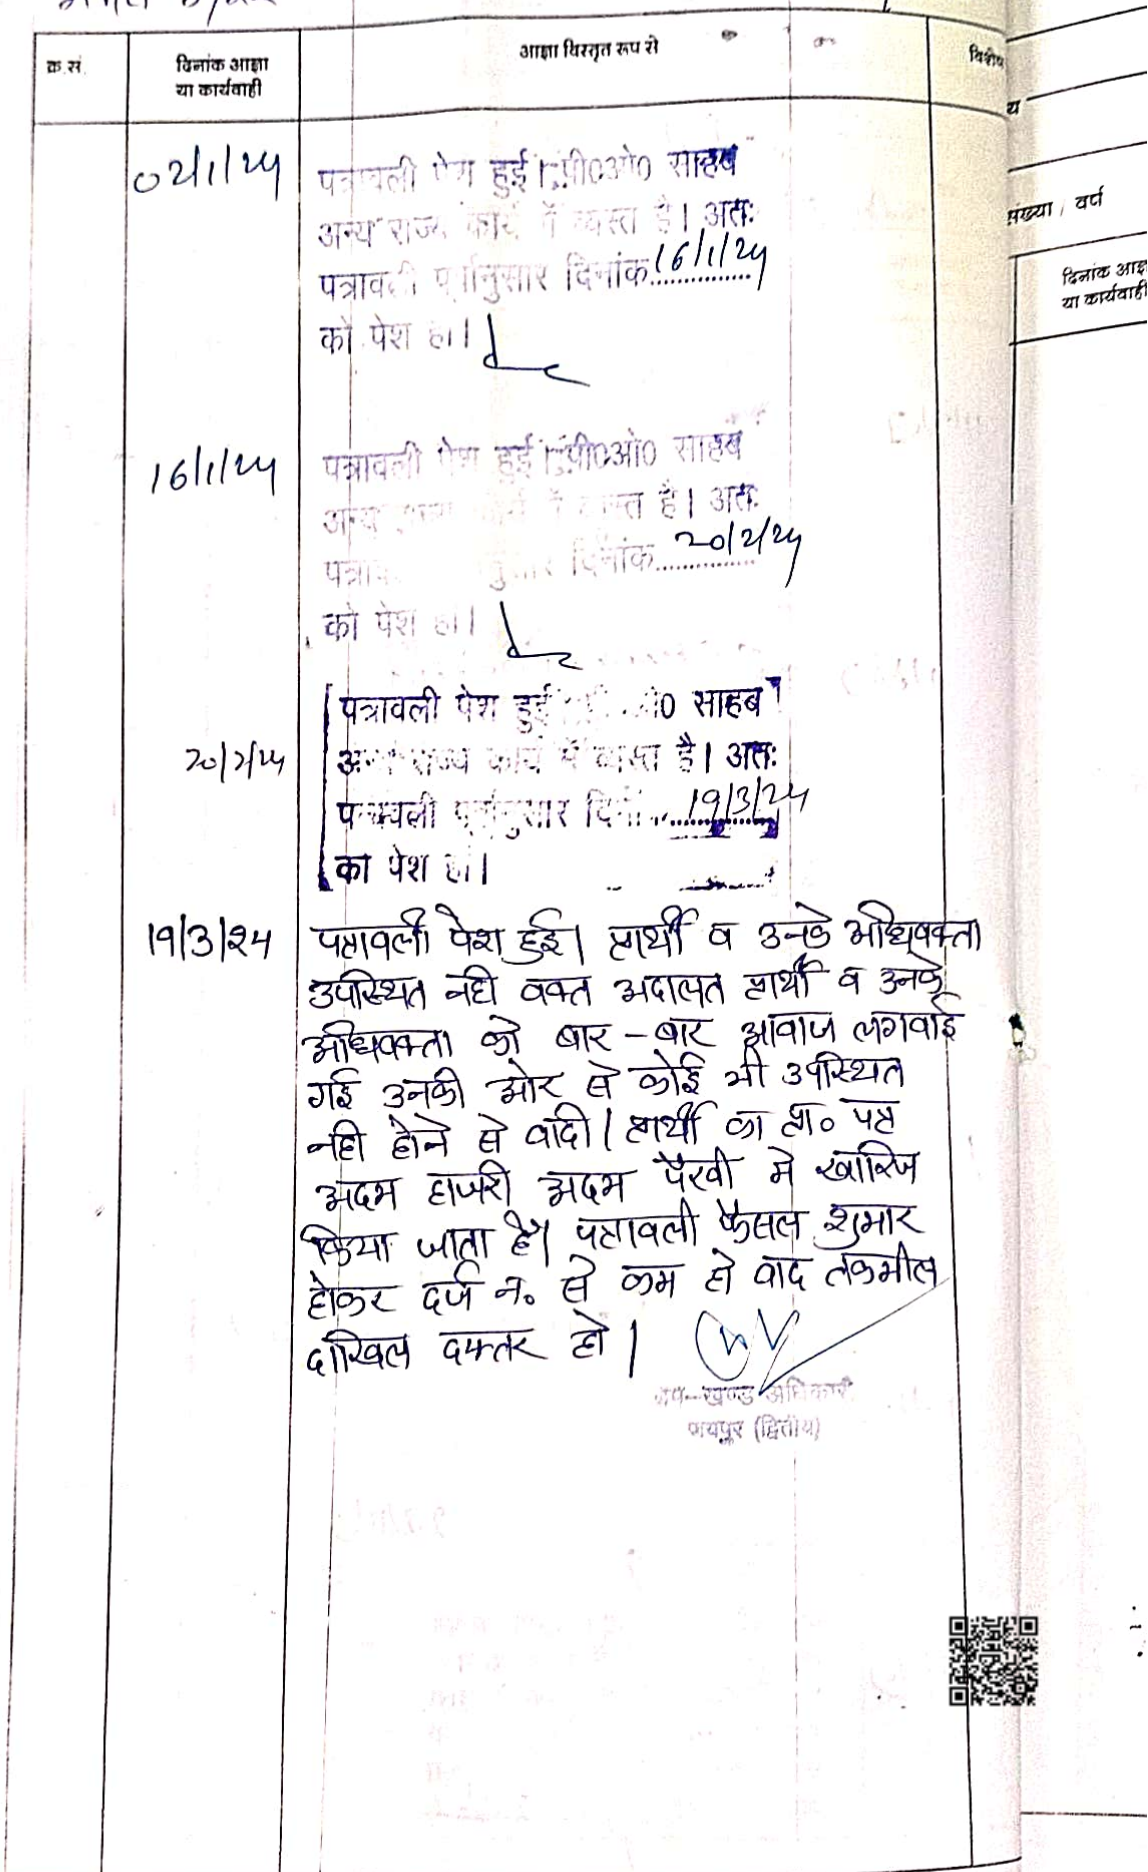 क्र.सं.
दिनांक आज्ञा
या कार्यवाही
आज्ञा विस्तृत रूप से
विशेष
02/1/24
पत्रावली पेश हुई। पी०ओ० साहब
अन्य राज्य कार्य में व्यस्त है। अतः
पत्रावली पूर्वानुसार दिनांक 16/1/24
को पेश हो।
16/1/24
पत्रावली पेश हुई। पी०ओ० साहब
अन्य राज्य कार्य में व्यस्त है। अतः
दिनांक 20/2/24
को पेश हो।
20/2/24
पत्रावली पेश हुई ओ० साहब
अन्य राज्य कार्य में व्यस्त है। अतः
पत्रावली पूर्वानुसार 19/3/24
को पेश हो।
19/3/24
पत्रावली पेश हुई। प्रार्थी व उनके अधिवक्ता
उपस्थित नही वक्त अदालत प्रार्थी व उनके
अधिवक्ता को बार-बार आवाज लगवाई
गई उनकी ओर से कोई भी उपस्थित
नही होने से वादी/प्रार्थी का प्रा० पत्र
अदम हाजरी अदम पैरवी मे खारिज
किया जाता है। पत्रावली फैसल शुमार
होकर दर्ज न० से कम हो वाद तकमील
दाखिल दफ्तर हो।
उप-खण्ड अधिकारी
जयपुर (द्वितीय)
य
संख्या / वर्ष
दिनांक आज्ञ
या कार्यवाही